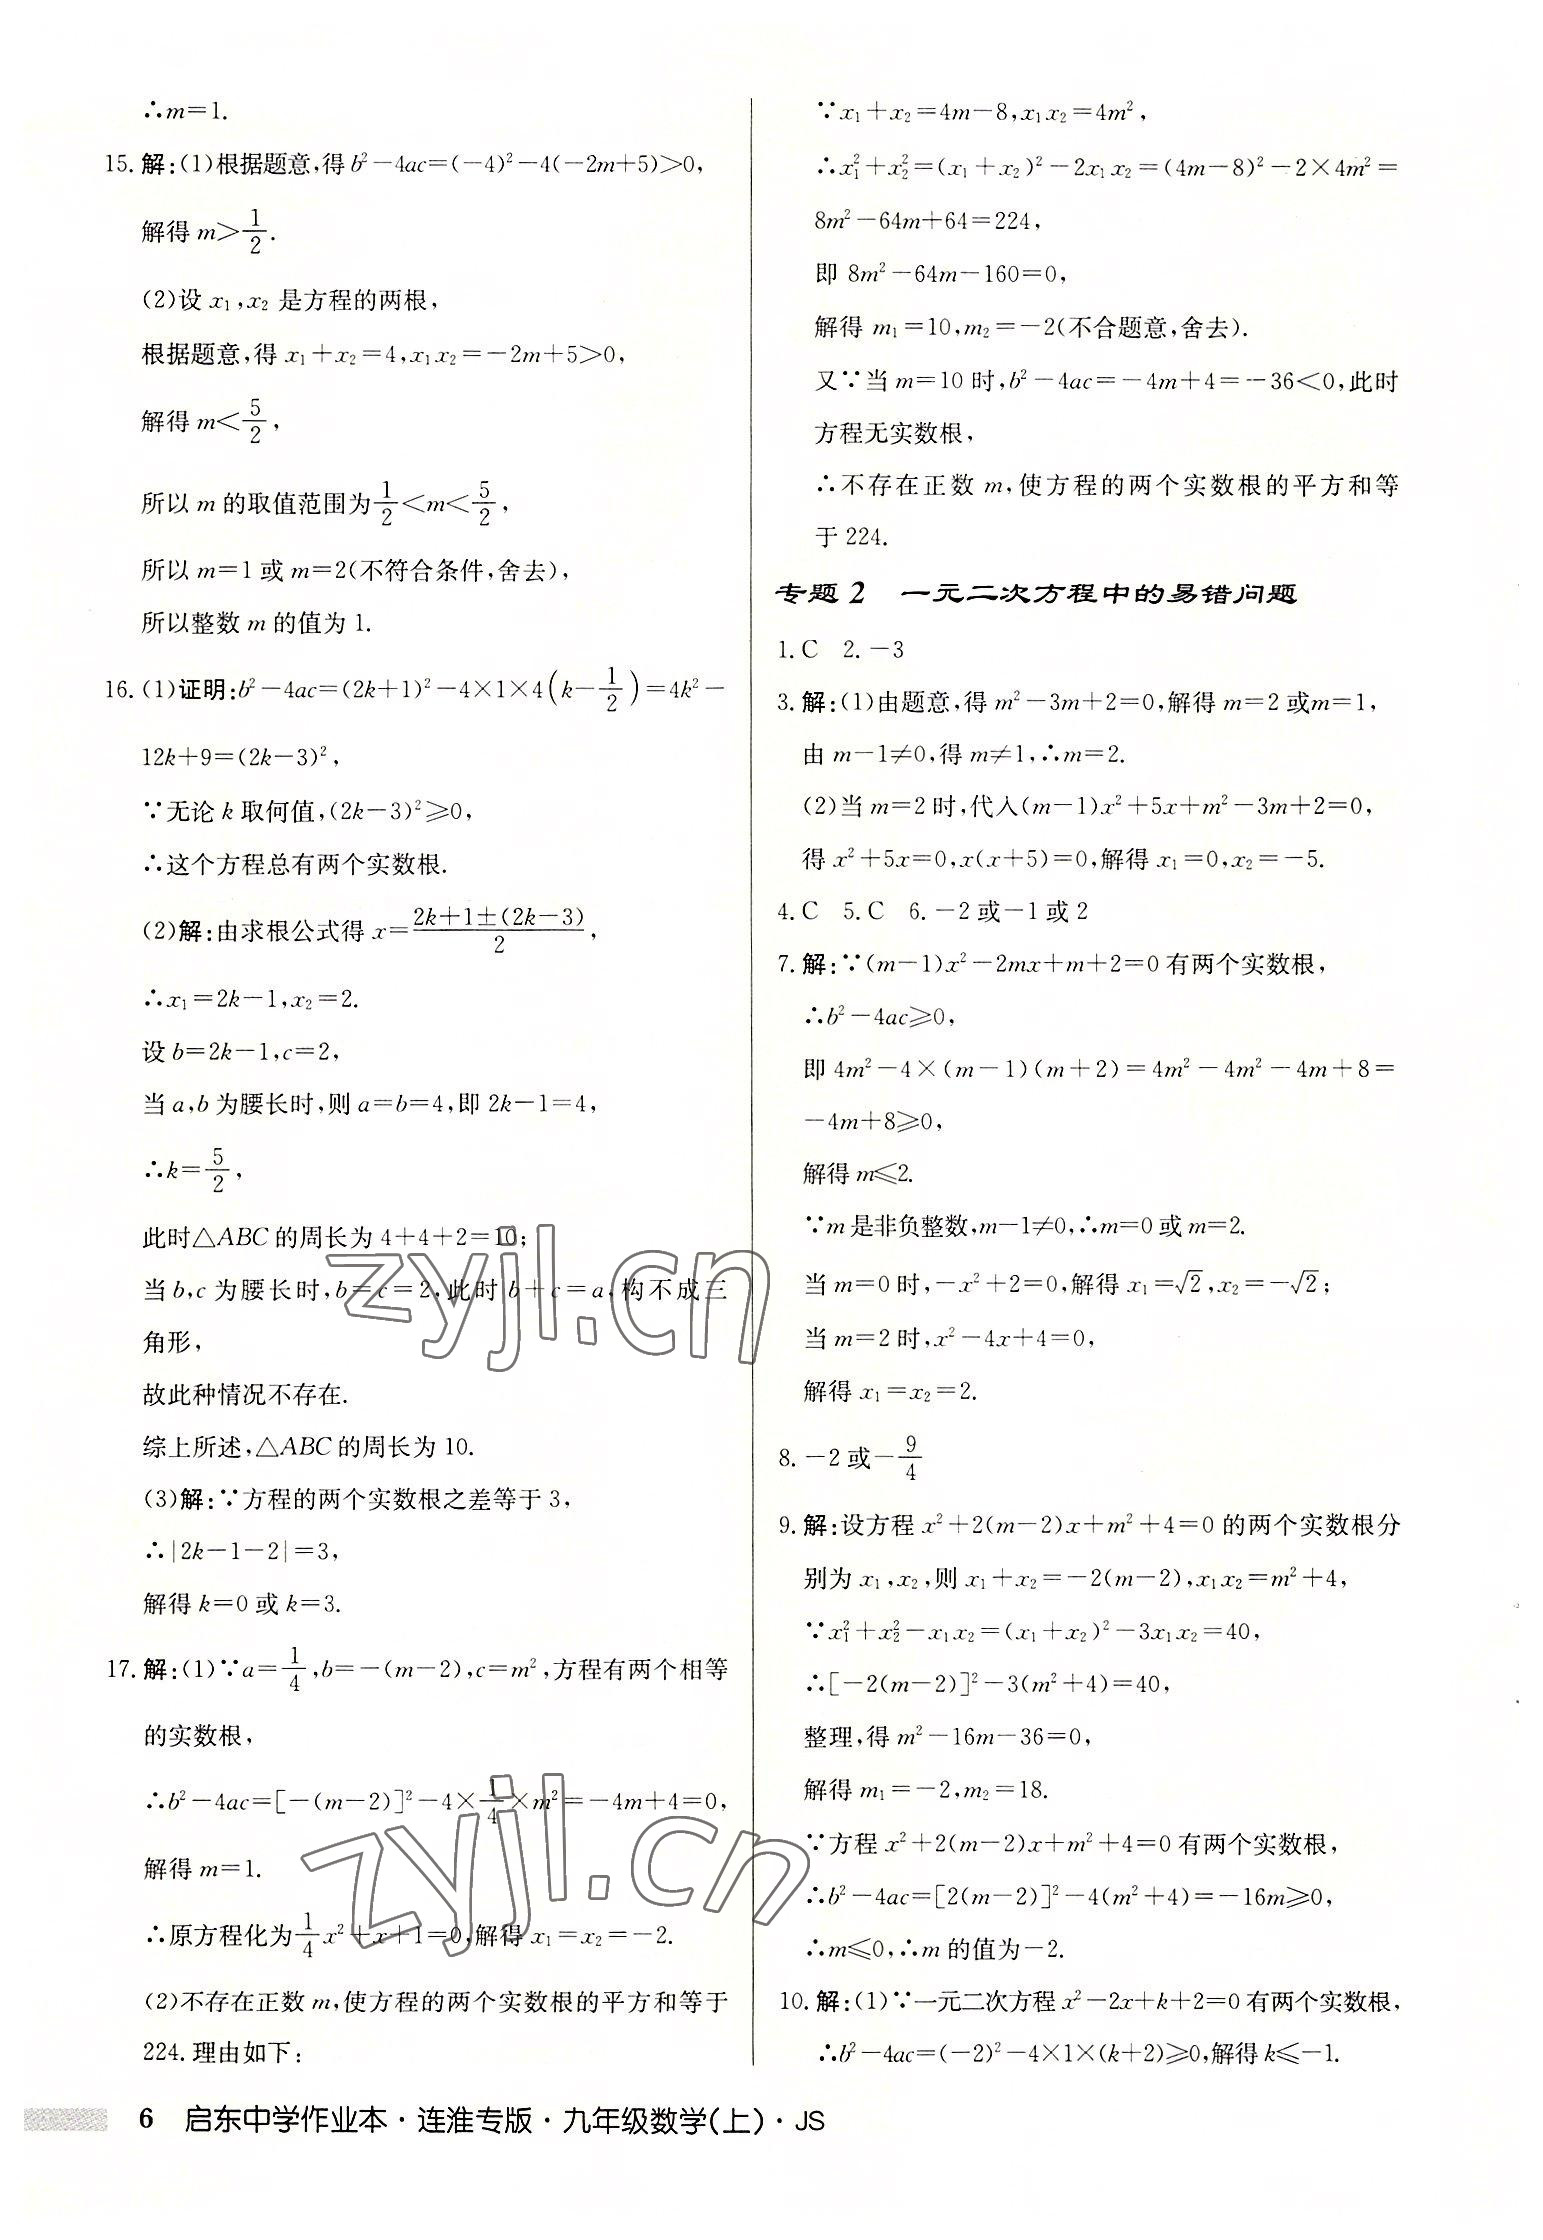 ∴m=1.
15. 解:(1)根据题意,得 b²-4ac=(-4)²-4(-2m+5)>0,
解得 m>1/2.
(2)设 x₁,x₂ 是方程的两根,
根据题意,得 x₁+x₂=4,x₁x₂=-2m+5>0,
解得 m<5/2,
所以 m 的取值范围为1/2<m<5/2,
所以 m=1 或 m=2(不符合条件,舍去),
所以整数 m 的值为 1.
16. (1)证明:b²-4ac=(2k+1)²-4×1×4(k-1/2)=4k²-
12k+9=(2k-3)²,
∵无论 k 取何值,(2k-3)²≥0,
∴这个方程总有两个实数根.
(2)解:由求根公式得 x=(2k+1±(2k-3))/2,
∴x₁=2k-1,x₂=2.
设 b=2k-1,c=2,
当 a,b 为腰长时,则 a=b=4,即 2k-1=4,
∴k=5/2,
此时△ABC 的周长为 4+4+2=10;
当 b,c 为腰长时,b=c=2,此时 b+c=a,构不成三
角形,
故此种情况不存在.
综上所述,△ABC 的周长为 10.
(3)解:∵方程的两个实数根之差等于 3,
∴|2k-1-2|=3,
解得 k=0 或 k=3.
17. 解:(1)∵a=1/4,b=-(m-2),c=m²,方程有两个相等
的实数根,
∴b²-4ac=[-(m-2)]²-4×1/4×m²=-4m+4=0,
解得 m=1.
∴原方程化为1/4x²+x+1=0,解得 x₁=x₂=-2.
(2)不存在正数 m,使方程的两个实数根的平方和等于
224.理由如下:
∵x₁+x₂=4m-8,x₁x₂=4m²,
∴x₁²+x₂²=(x₁+x₂)²-2x₁x₂=(4m-8)²-2×4m²=
8m²-64m+64=224,
即 8m²-64m-160=0,
解得 m₁=10,m₂=-2(不合题意,舍去).
又∵当 m=10 时,b²-4ac=-4m+4=-36<0,此时
方程无实数根,
∴不存在正数 m,使方程的两个实数根的平方和等
于 224.
专题 2 一元二次方程中的易错问题
1. C 2. -3
3. 解:(1)由题意,得 m²-3m+2=0,解得 m=2 或m=1,
由 m-1≠0,得 m≠1,∴m=2.
(2)当 m=2 时,代入(m-1)x²+5x+m²-3m+2=0,
得 x²+5x=0,x(x+5)=0,解得 x₁=0,x₂=-5.
4. C 5. C 6. -2或-1或2
7. 解:∵(m-1)x²-2mx+m+2=0 有两个实数根,
∴b²-4ac≥0,
即 4m²-4×(m-1)(m+2)=4m²-4m²-4m+8=
-4m+8≥0,
解得 m≤2.
∵m 是非负整数,m-1≠0,∴m=0 或 m=2.
当 m=0 时,-x²+2=0,解得 x₁=√2,x₂=-√2;
当 m=2 时,x²-4x+4=0,
解得 x₁=x₂=2.
8. -2或-9/4
9. 解:设方程 x²+2(m-2)x+m²+4=0 的两个实数根分
别为 x₁,x₂,则 x₁+x₂=-2(m-2),x₁x₂=m²+4,
∵x₁²+x₂²-x₁x₂=(x₁+x₂)²-3x₁x₂=40,
∴[-2(m-2)]²-3(m²+4)=40,
整理,得 m²-16m-36=0,
解得 m₁=-2,m₂=18.
∵方程 x²+2(m-2)x+m²+4=0 有两个实数根,
∴b²-4ac=[2(m-2)]²-4(m²+4)=-16m≥0,
∴m≤0,∴m 的值为-2.
10. 解:(1)∵一元二次方程 x²-2x+k+2=0 有两个实数根,
∴b²-4ac=(-2)²-4×1×(k+2)≥0,解得 k≤-1.
6 启东中学作业本·连淮专版·九年级数学(上)·JS
zyjl.cn
zyjl.cn